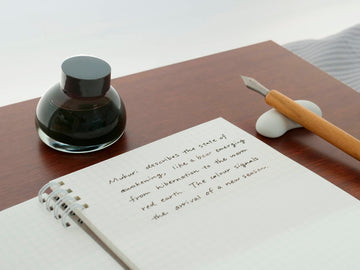 Mukur. describes the state of
awakening, like a bear emerging
from hibernation to the warm
red earth. The colour signals
the arrival of a new season.